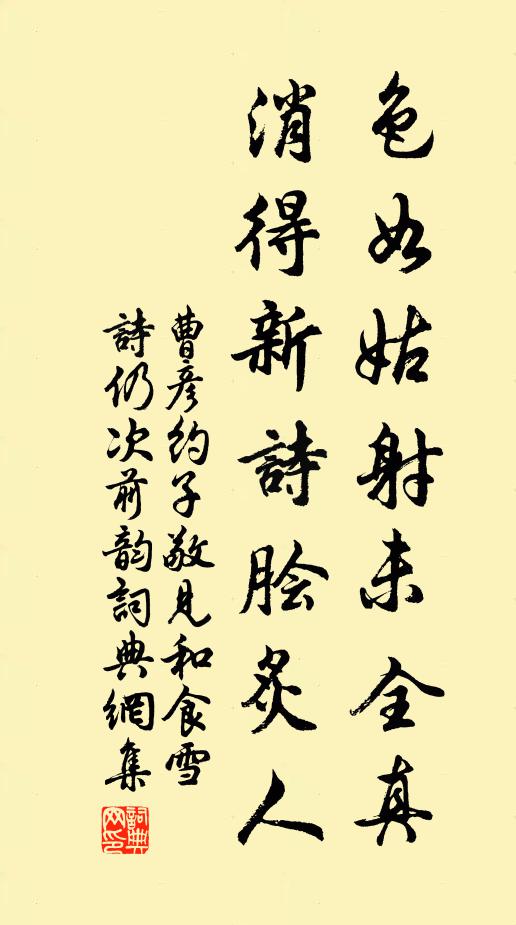 色如姑射未全真
消得新詩膾炙人
曹彦約子敬見和食雪
詩仍次前韵詞典網集
詞典
网印